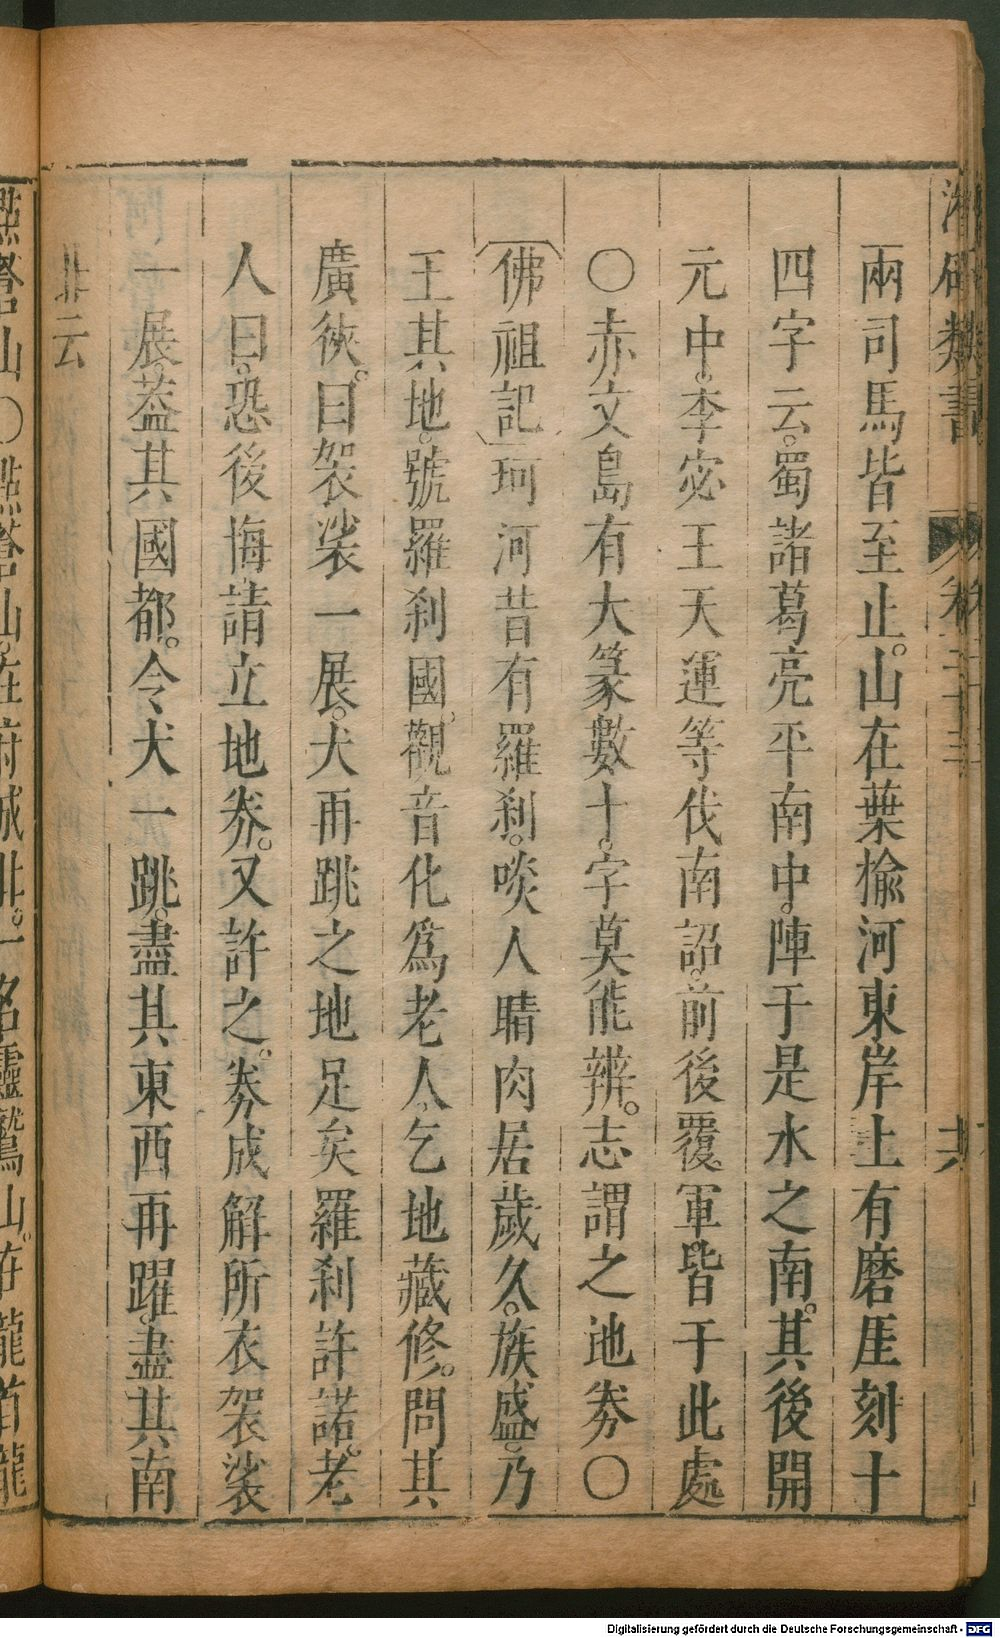 兩司馬皆至止。山在葉榆河東岸上有磨厓刻十
四字云。蜀諸葛亮平南中。陣于是水之南。其後開
元中。李宓王天運等伐南詔。前後覆軍皆于此處
〇赤文島有大篆數十。字莫能辨。志謂之地券〇
佛祖記珂河昔有羅刹。啖人睛肉居歲久。族盛。乃
王其地。號羅刹國。觀音化爲老人。乞地藏修。問其
廣狹。曰袈裟一展。犬再跳之地足矣羅刹許諾。老
人曰。恐後悔請立地券。又許之。券成解所衣袈裟
一展。葢其國都。令犬一跳。盡其東西再躍。盡其南
北云
點蒼山〇點蒼山。在府城北。一名靈鷲山。在龍首龍
Digitalisierung gefördert durch die Deutsche Forschungsgemeinschaft - DFG